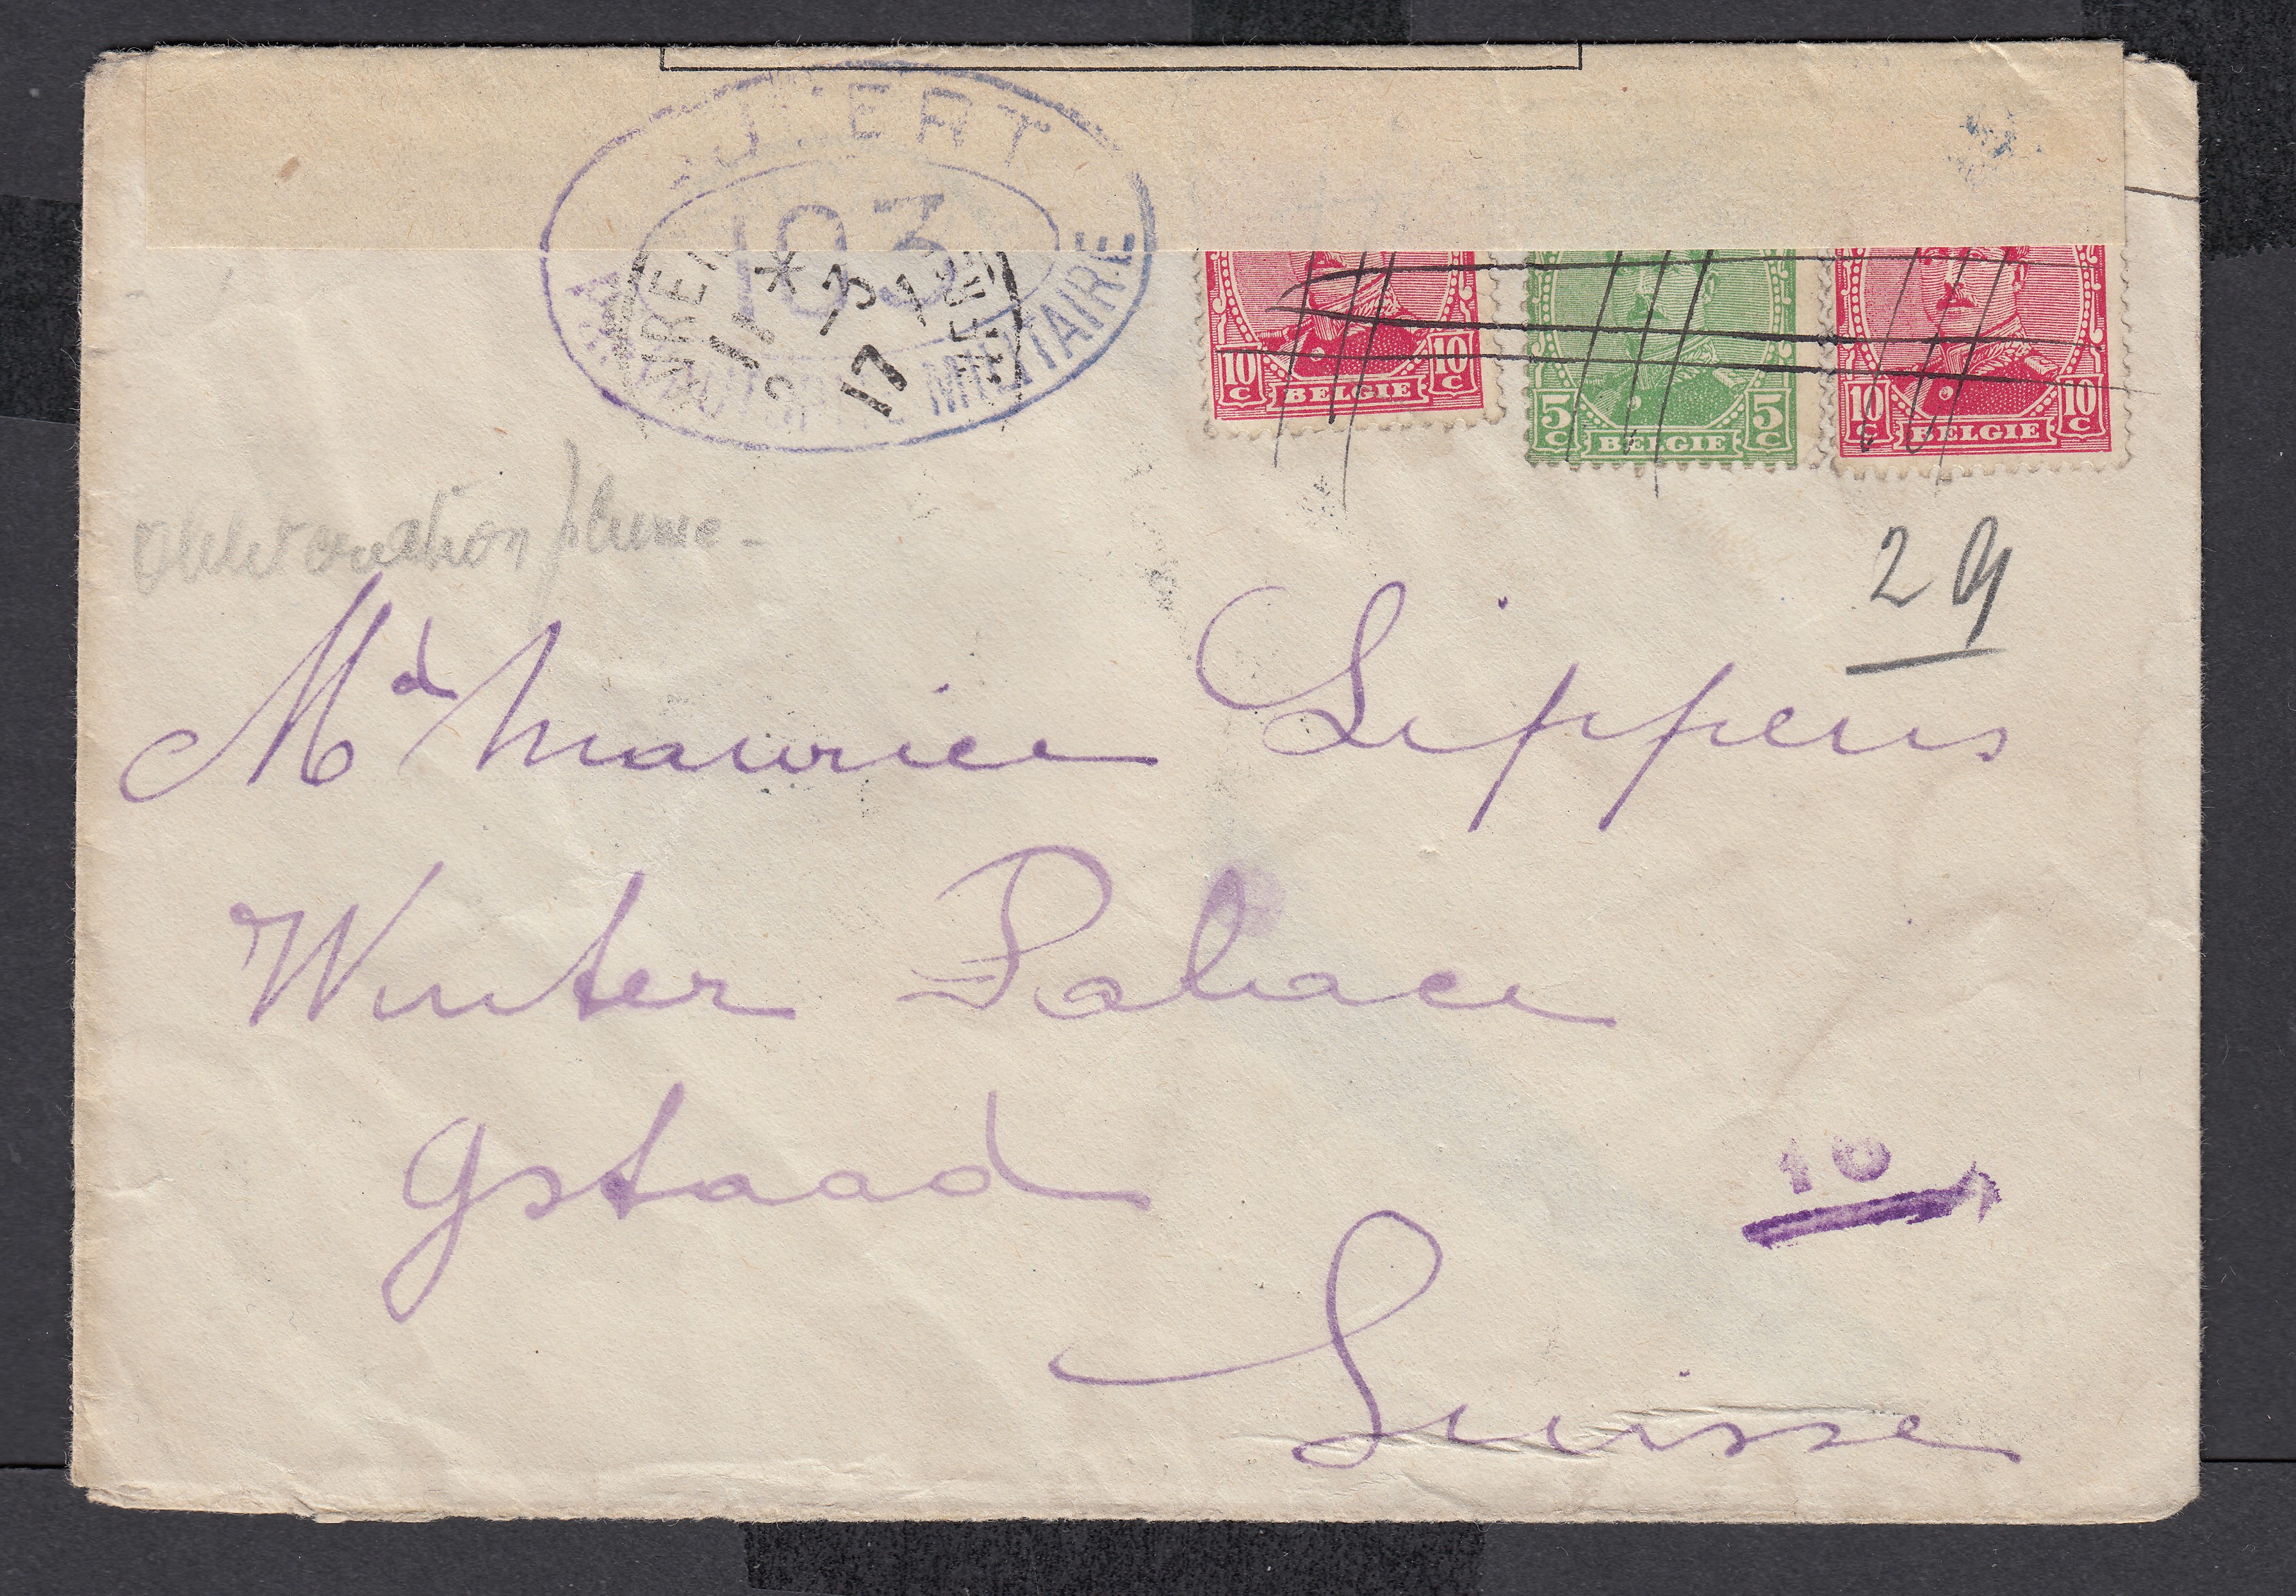 OUVERT
103
PAR L'AUTORITÉ MILITAIRE
*
11
3
17
10 C BELGIE 10 C
5 C BELGIE 5 C
10 C BELGIE 10 C
plume -
29
Md Maurice Lippens
Winter Palace
Gstaad
10
Suisse